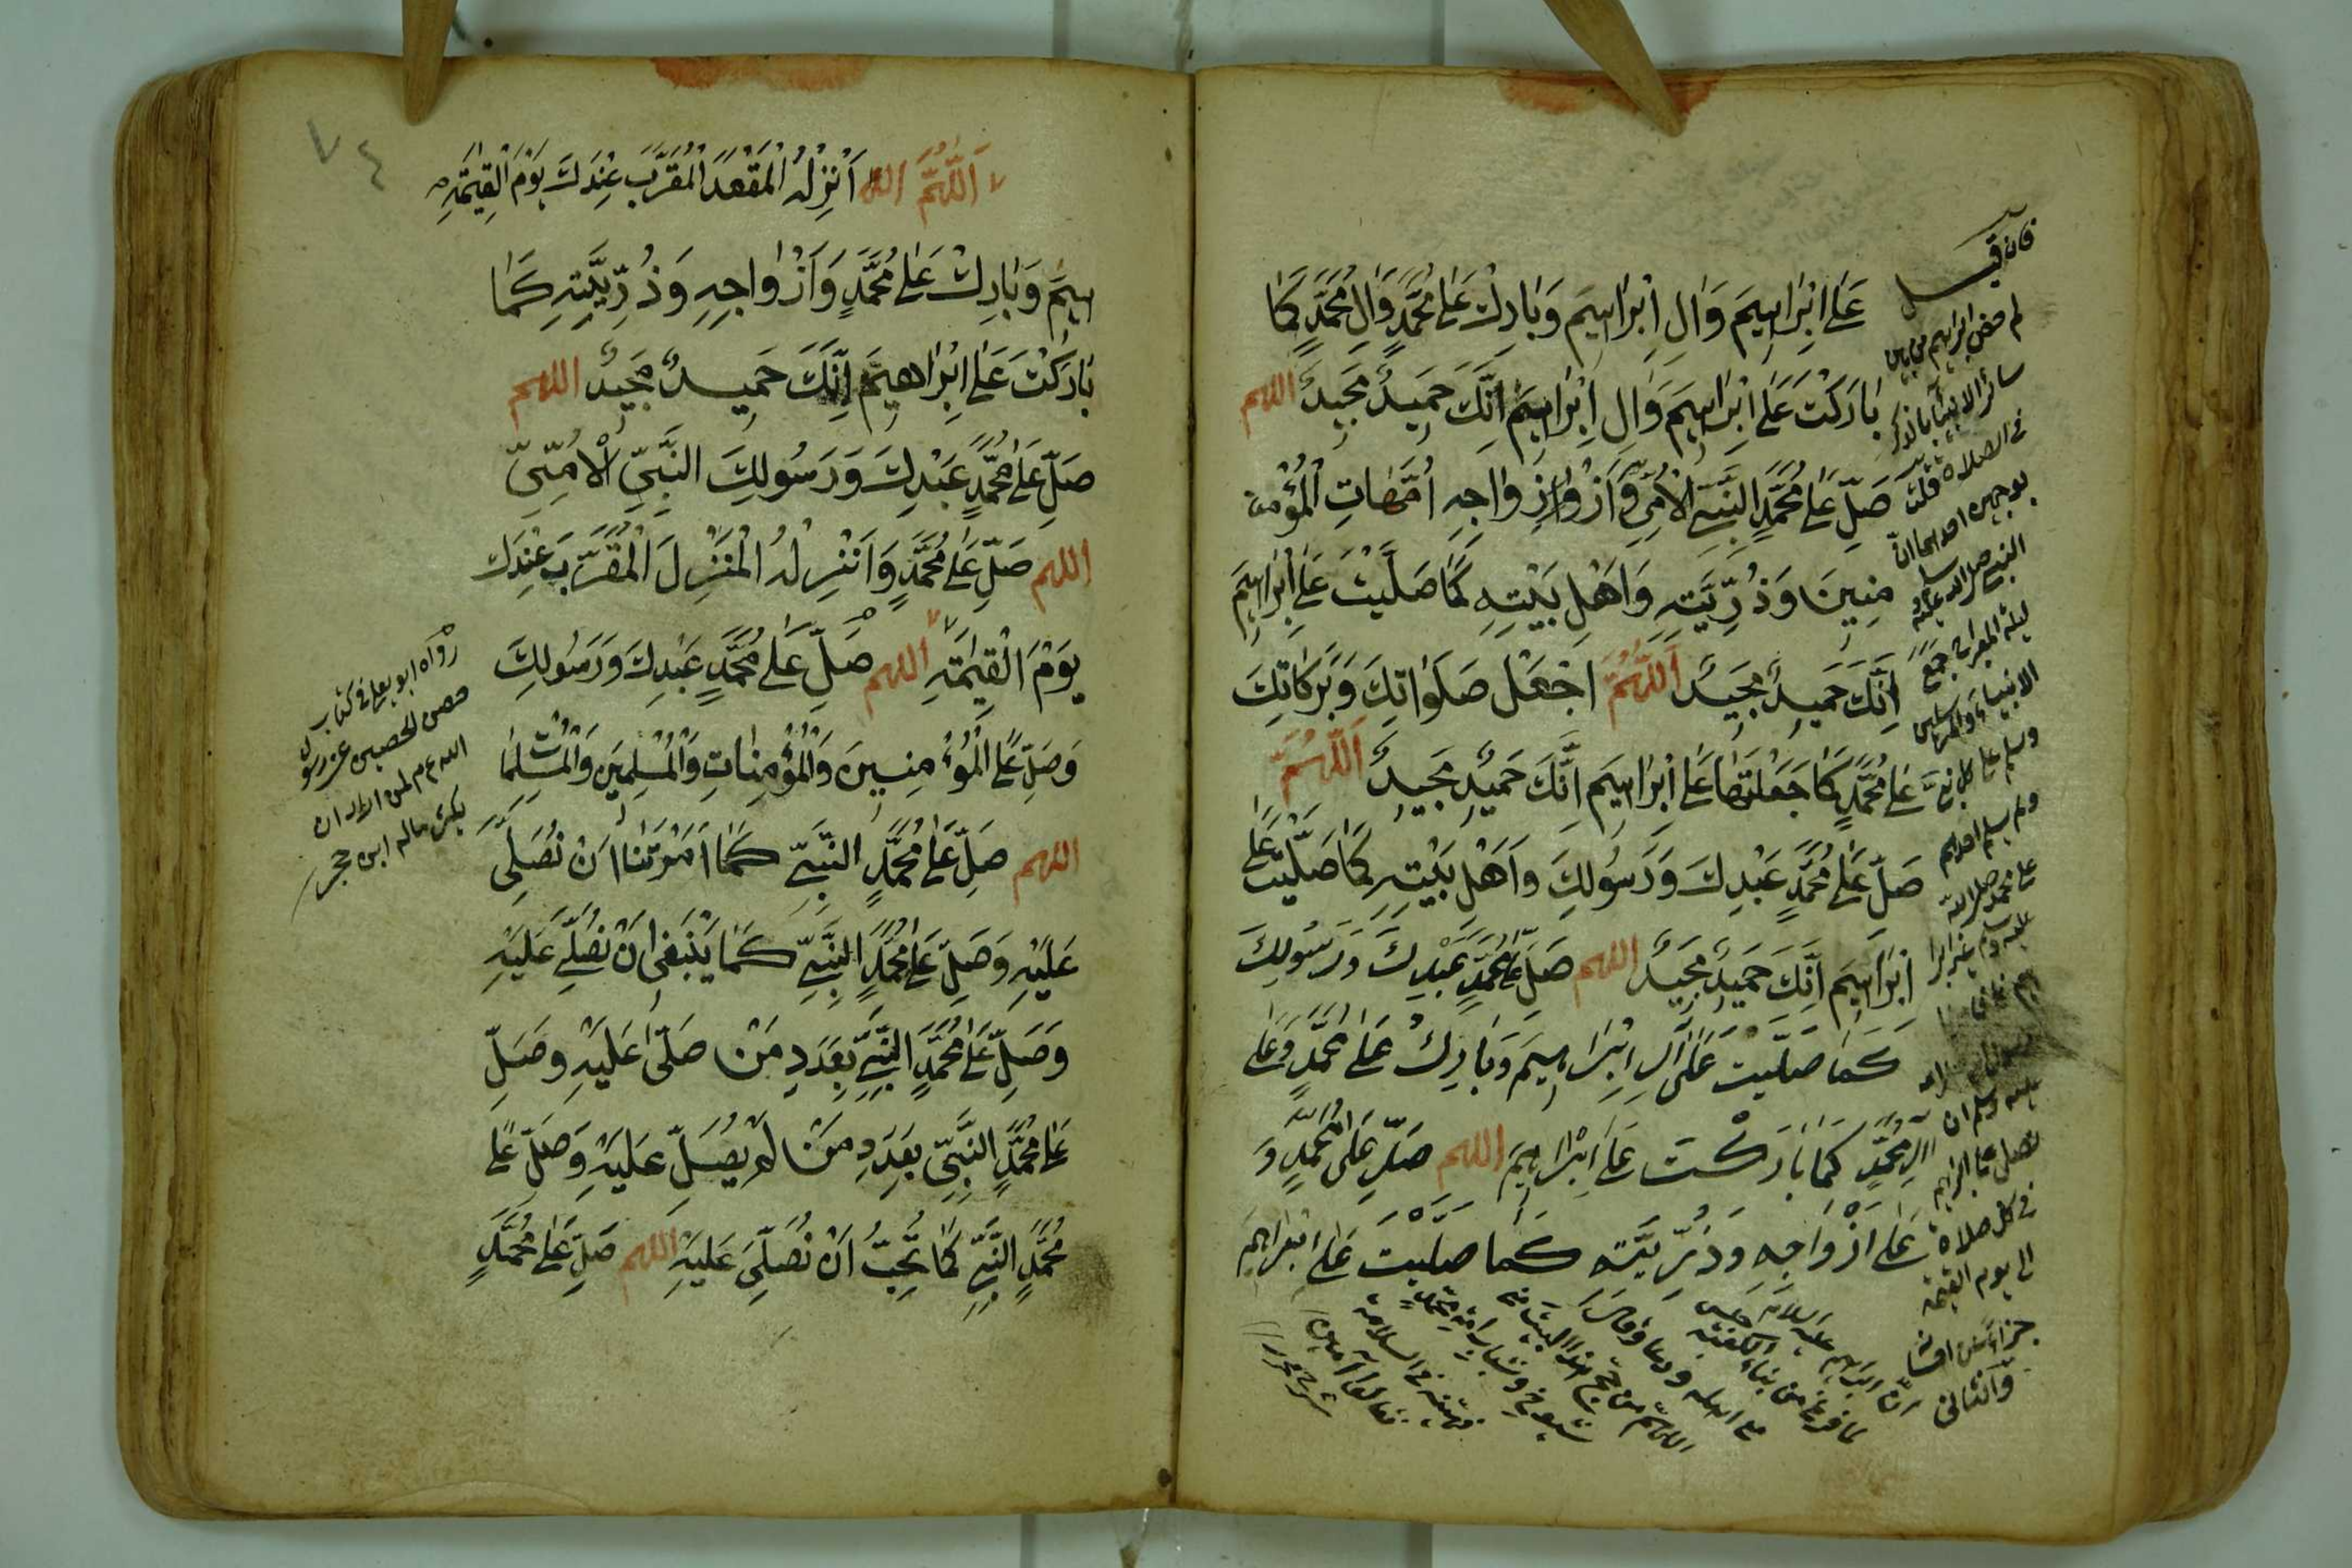 عَلٰى اِبْرٰاهِيمَ وَاٰلِ اِبْرٰاهِيمَ وَبٰارِكْ عَلٰى مُحَمَّدٍ وَاٰلِ مُحَمَّدٍ كَمٰا
بٰارَكْتَ عَلٰى اِبْرٰاهِيمَ وَاٰلِ اِبْرٰاهِيمَ اِنَّكَ حَمِيدٌ مَجِيدٌ اللهم
صَلِّ عَلٰى مُحَمَّدٍ النَّبِيِّ الْاُمِّيِّ وَاَزْوٰاجِهِ اُمَّهٰاتِ الْمُؤْمِ
مِنِينَ وَذُرِّيَّتِهِ وَاَهْلِ بَيْتِهِ كَمٰا صَلَّيْتَ عَلٰى اِبْرٰاهِيمَ
اِنَّكَ حَمِيدٌ مَجِيدٌ اَللّٰهُمَّ اجْعَلْ صَلَوٰاتِكَ وَبَرَكٰاتِكَ
عَلٰى مُحَمَّدٍ كَمٰا جَعَلْتَهٰا عَلٰى اِبْرٰاهِيمَ اِنَّكَ حَمِيدٌ مَجِيدٌ اَللّٰهُمَّ
صَلِّ عَلٰى مُحَمَّدٍ عَبْدِكَ وَرَسُولِكَ وَاَهْلِ بَيْتِهِ كَمٰا صَلَّيْتَ عَلٰى
اِبْرٰاهِيمَ اِنَّكَ حَمِيدٌ مَجِيدٌ اللهم صَلِّ عَلٰى مُحَمَّدٍ عَبْدِكَ وَرَسُولِكَ
كَمٰا صَلَّيْتَ عَلٰى اٰلِ اِبْرٰاهِيمَ وَبٰارِكْ عَلٰى مُحَمَّدٍ وَعَلٰى
اٰلِ مُحَمَّدٍ كَمٰا بٰارَكْتَ عَلٰى اِبْرٰاهِيمَ اللهم صَلِّ عَلٰى مُحَمَّدٍ وَ
عَلٰى اَزْوٰاجِهِ وَذُرِّيَّتِهِ كَمٰا صَلَّيْتَ عَلٰى اِبْرٰاهِيمَ
فان قيل
لم خص ابراهيم من بين
سائر الانبياء بالذكر
في الصلاة قلت
بوجهين احدهما ان
النبي صلى الله عليه وسلم
ليلة المعراج جميع
الانبياء والمرسلين
وسلم على كل نبي
ولم يسلم احدهم
على محمد صلى الله
عليه وسلم غير ابرا
عليه وسلم ان
نصلي على ابراهيم
في كل صلاة
الى يوم القيمة
والثاني
ان ابراهيم عليه السلام
لما فرغ من بناء الكعبة جلس
مع اهله ودعا وقال
اللهم من حج هذا البيت من
شيوخ وشباب امة محمد
فهبه مني السلامة
فقالوا آمين
٧٤
اَللّٰهُمَّ اَنْزِلْهُ الْمَقْعَدَ الْمُقَرَّبَ عِنْدَكَ يَوْمَ الْقِيٰمَةِ
هِيمَ وَبٰارِكْ عَلٰى مُحَمَّدٍ وَاَزْوٰاجِهِ وَذُرِّيَّتِهِ كَمٰا
بٰارَكْتَ عَلٰى اِبْرٰاهِيمَ اِنَّكَ حَمِيدٌ مَجِيدٌ اللهم
صَلِّ عَلٰى مُحَمَّدٍ عَبْدِكَ وَرَسُولِكَ النَّبِيِّ الْاُمِّيِّ
اللهم صَلِّ عَلٰى مُحَمَّدٍ وَاَنْزِلْهُ الْمَنْزِلَ الْمُقَرَّبَ عِنْدَكَ
يَوْمَ الْقِيٰمَةِ اللهم صَلِّ عَلٰى مُحَمَّدٍ عَبْدِكَ وَرَسُولِكَ
وَصَلِّ عَلٰى الْمُؤْمِنِينَ وَالْمُؤْمِنٰاتِ وَالْمُسْلِمِينَ وَالْمُسْلِمٰاتِ
اللهم صَلِّ عَلٰى مُحَمَّدٍ النَّبِيِّ كَمٰا اَمَرْتَنٰا اَنْ نُصَلِّيَ
عَلَيْهِ وَصَلِّ عَلٰى مُحَمَّدٍ النَّبِيِّ كَمٰا يَنْبَغِي اَنْ نُصَلِّيَ عَلَيْهِ
وَصَلِّ عَلٰى مُحَمَّدٍ النَّبِيِّ بِعَدَدِ مَنْ صَلّٰى عَلَيْهِ وَصَلِّ
عَلٰى مُحَمَّدٍ النَّبِيِّ بِعَدَدِ مَنْ لَمْ يُصَلِّ عَلَيْهِ وَصَلِّ عَلٰى
مُحَمَّدٍ النَّبِيِّ كَمٰا تُحِبُّ اَنْ نُصَلِّيَ عَلَيْهِ اللهم صَلِّ عَلٰى مُحَمَّدٍ
رواه ابو يعلى في كتاب
حصن الحصين عن رسول
الله لمن اراد ان
يكثر ماله ابن حجر